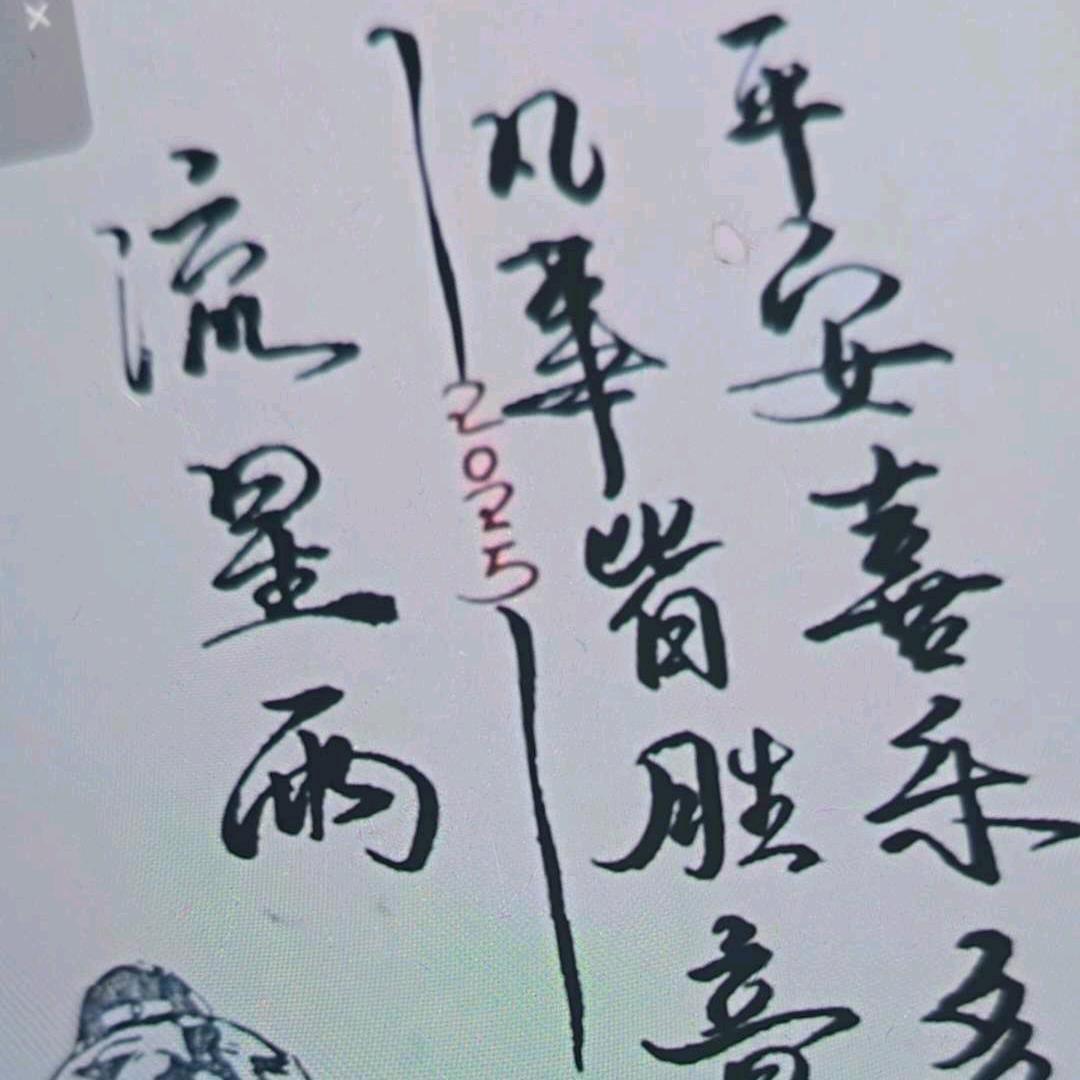 平安喜乐
风华皆胜意
2025
流星雨